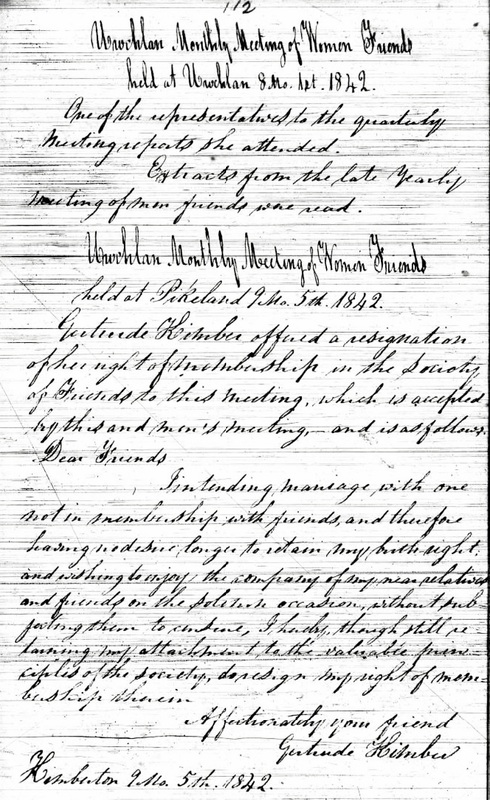 112
Uwchlan Monthly Meeting of Women Friends
held at Uwchlan 8 Mo. 1st. 1842.
One of the representatives to the quarterly
Meeting reports she attended.
Extracts from the late Yearly
meeting of men friends were read.
Uwchlan Monthly Meeting of Women Friends
held at Pikeland 9 Mo. 5th. 1842.
Gertrude Kimber offered a resignation
of her right of membership in the Society
of Friends to this meeting, which is accepted
by this and men's meeting,— and is as follows.
Dear Friends
Intending mariage with one
not in membership with friends, and therefore
having no desire longer to retain my birth right,
and wishing to enjoy the company of my near relatives
and friends on the solemn occasion, without sub=
jecting them to censure, I hereby, though still re=
taining my attachment to the valuable prin=
ciples of the society, do resign my right of mem=
bership therein
Affectionately your friend
Gertrude Kimber
Kimberton 9 Mo. 5th. 1842.